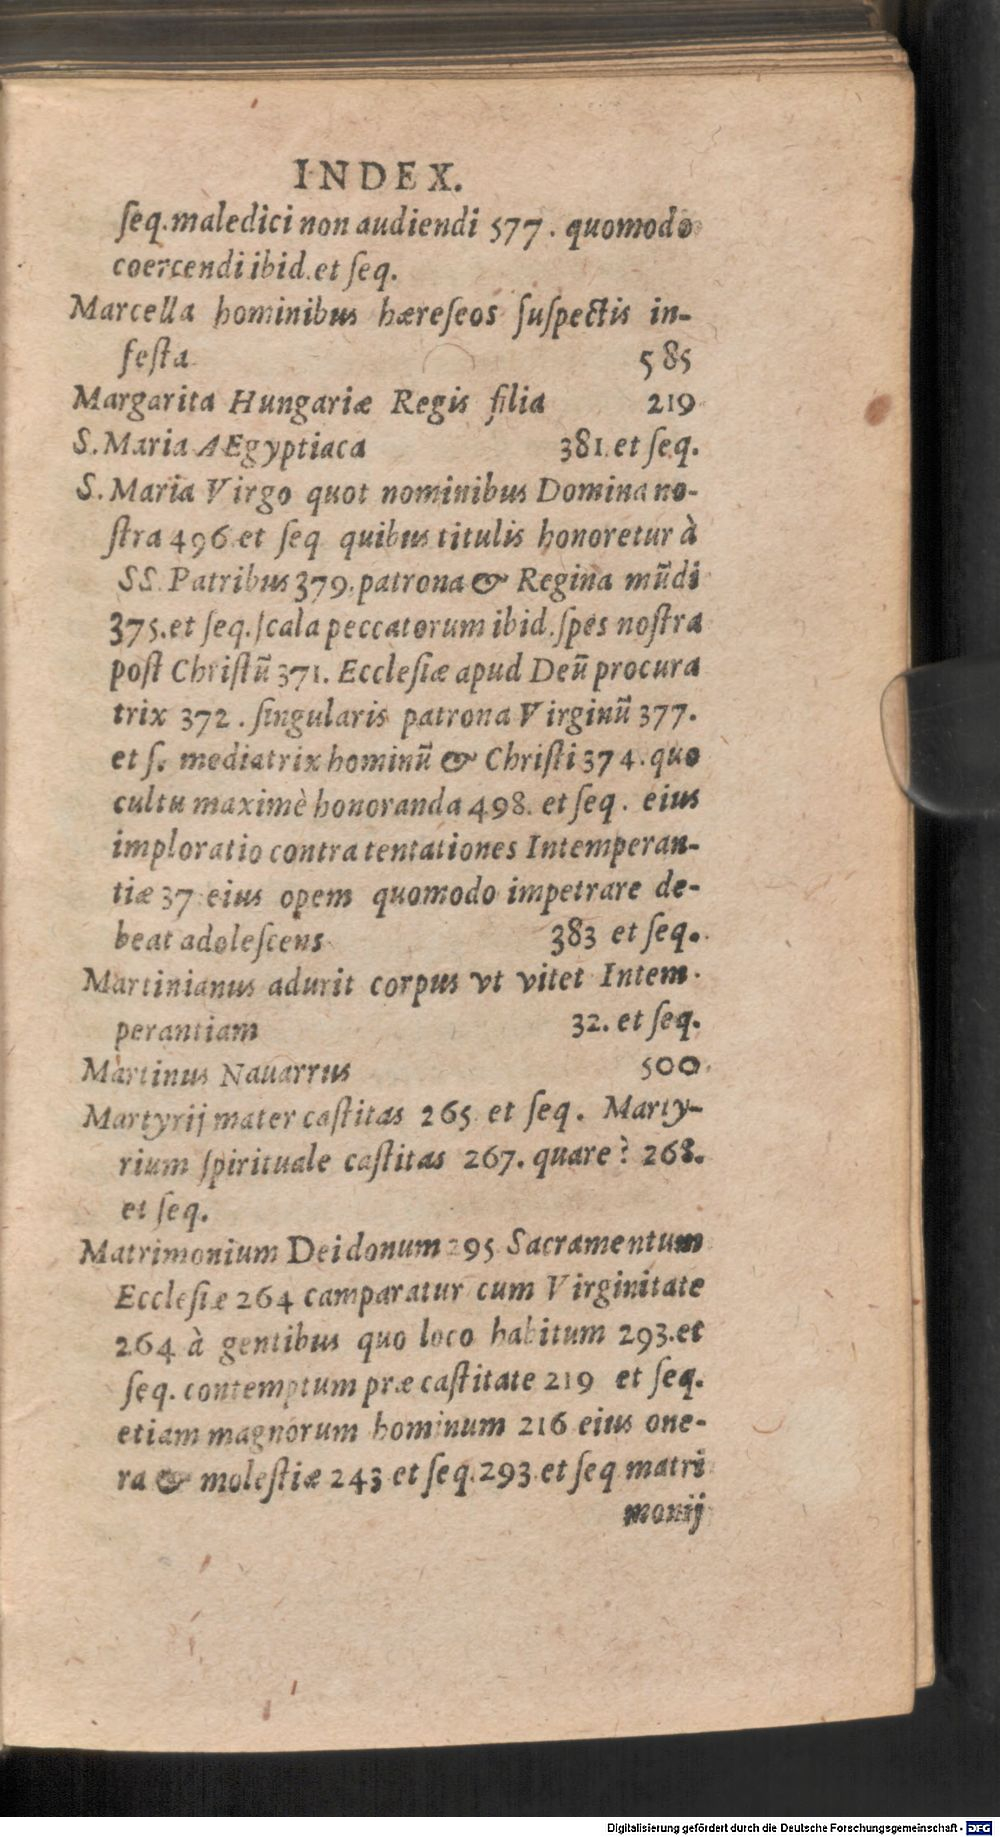 INDEX.
ſeq. maledici non audiendi 577. quomodo
coercendi ibid. et ſeq.
Marcella hominibus hæreſeos ſuſpectis in-
feſta 585
Margarita Hungariæ Regis filia 219
S. Maria AEgyptiaca 381. et ſeq.
S. Maria Virgo quot nominibus Domina no-
ſtra 496 et ſeq quibus titulis honoretur à
SS. Patribus 379. patrona & Regina mũdi
375. et ſeq. ſcala peccatorum ibid. ſpes noſtra
poſt Chriſtũ 371. Eccleſiæ apud Deũ procura
trix 372. ſingularis patrona Virginũ 377.
et ſ. mediatrix hominũ & Chriſti 374. quo
cultu maximè honoranda 498. et ſeq. eius
imploratio contra tentationes Intemperan-
tiæ 37 eius opem quomodo impetrare de-
beat adoleſcens 383 et ſeq.
Martinianus adurit corpus vt vitet Intem-
perantiam 32. et ſeq.
Martinus Nauarrus 500.
Martyrij mater caſtitas 265 et ſeq. Marty-
rium ſpirituale caſtitas 267. quare? 268.
et ſeq.
Matrimonium Dei donum 295 Sacramentum
Eccleſiæ 264 camparatur cum Virginitate
264 à gentibus quo loco habitum 293. et
ſeq. contemptum præ caſtitate 219 et ſeq.
etiam magnorum hominum 216 eius one-
ra & moleſtiæ 243 et ſeq. 293. et ſeq matri
monij
Digitalisierung gefördert durch die Deutsche Forschungsgemeinschaft - DFG